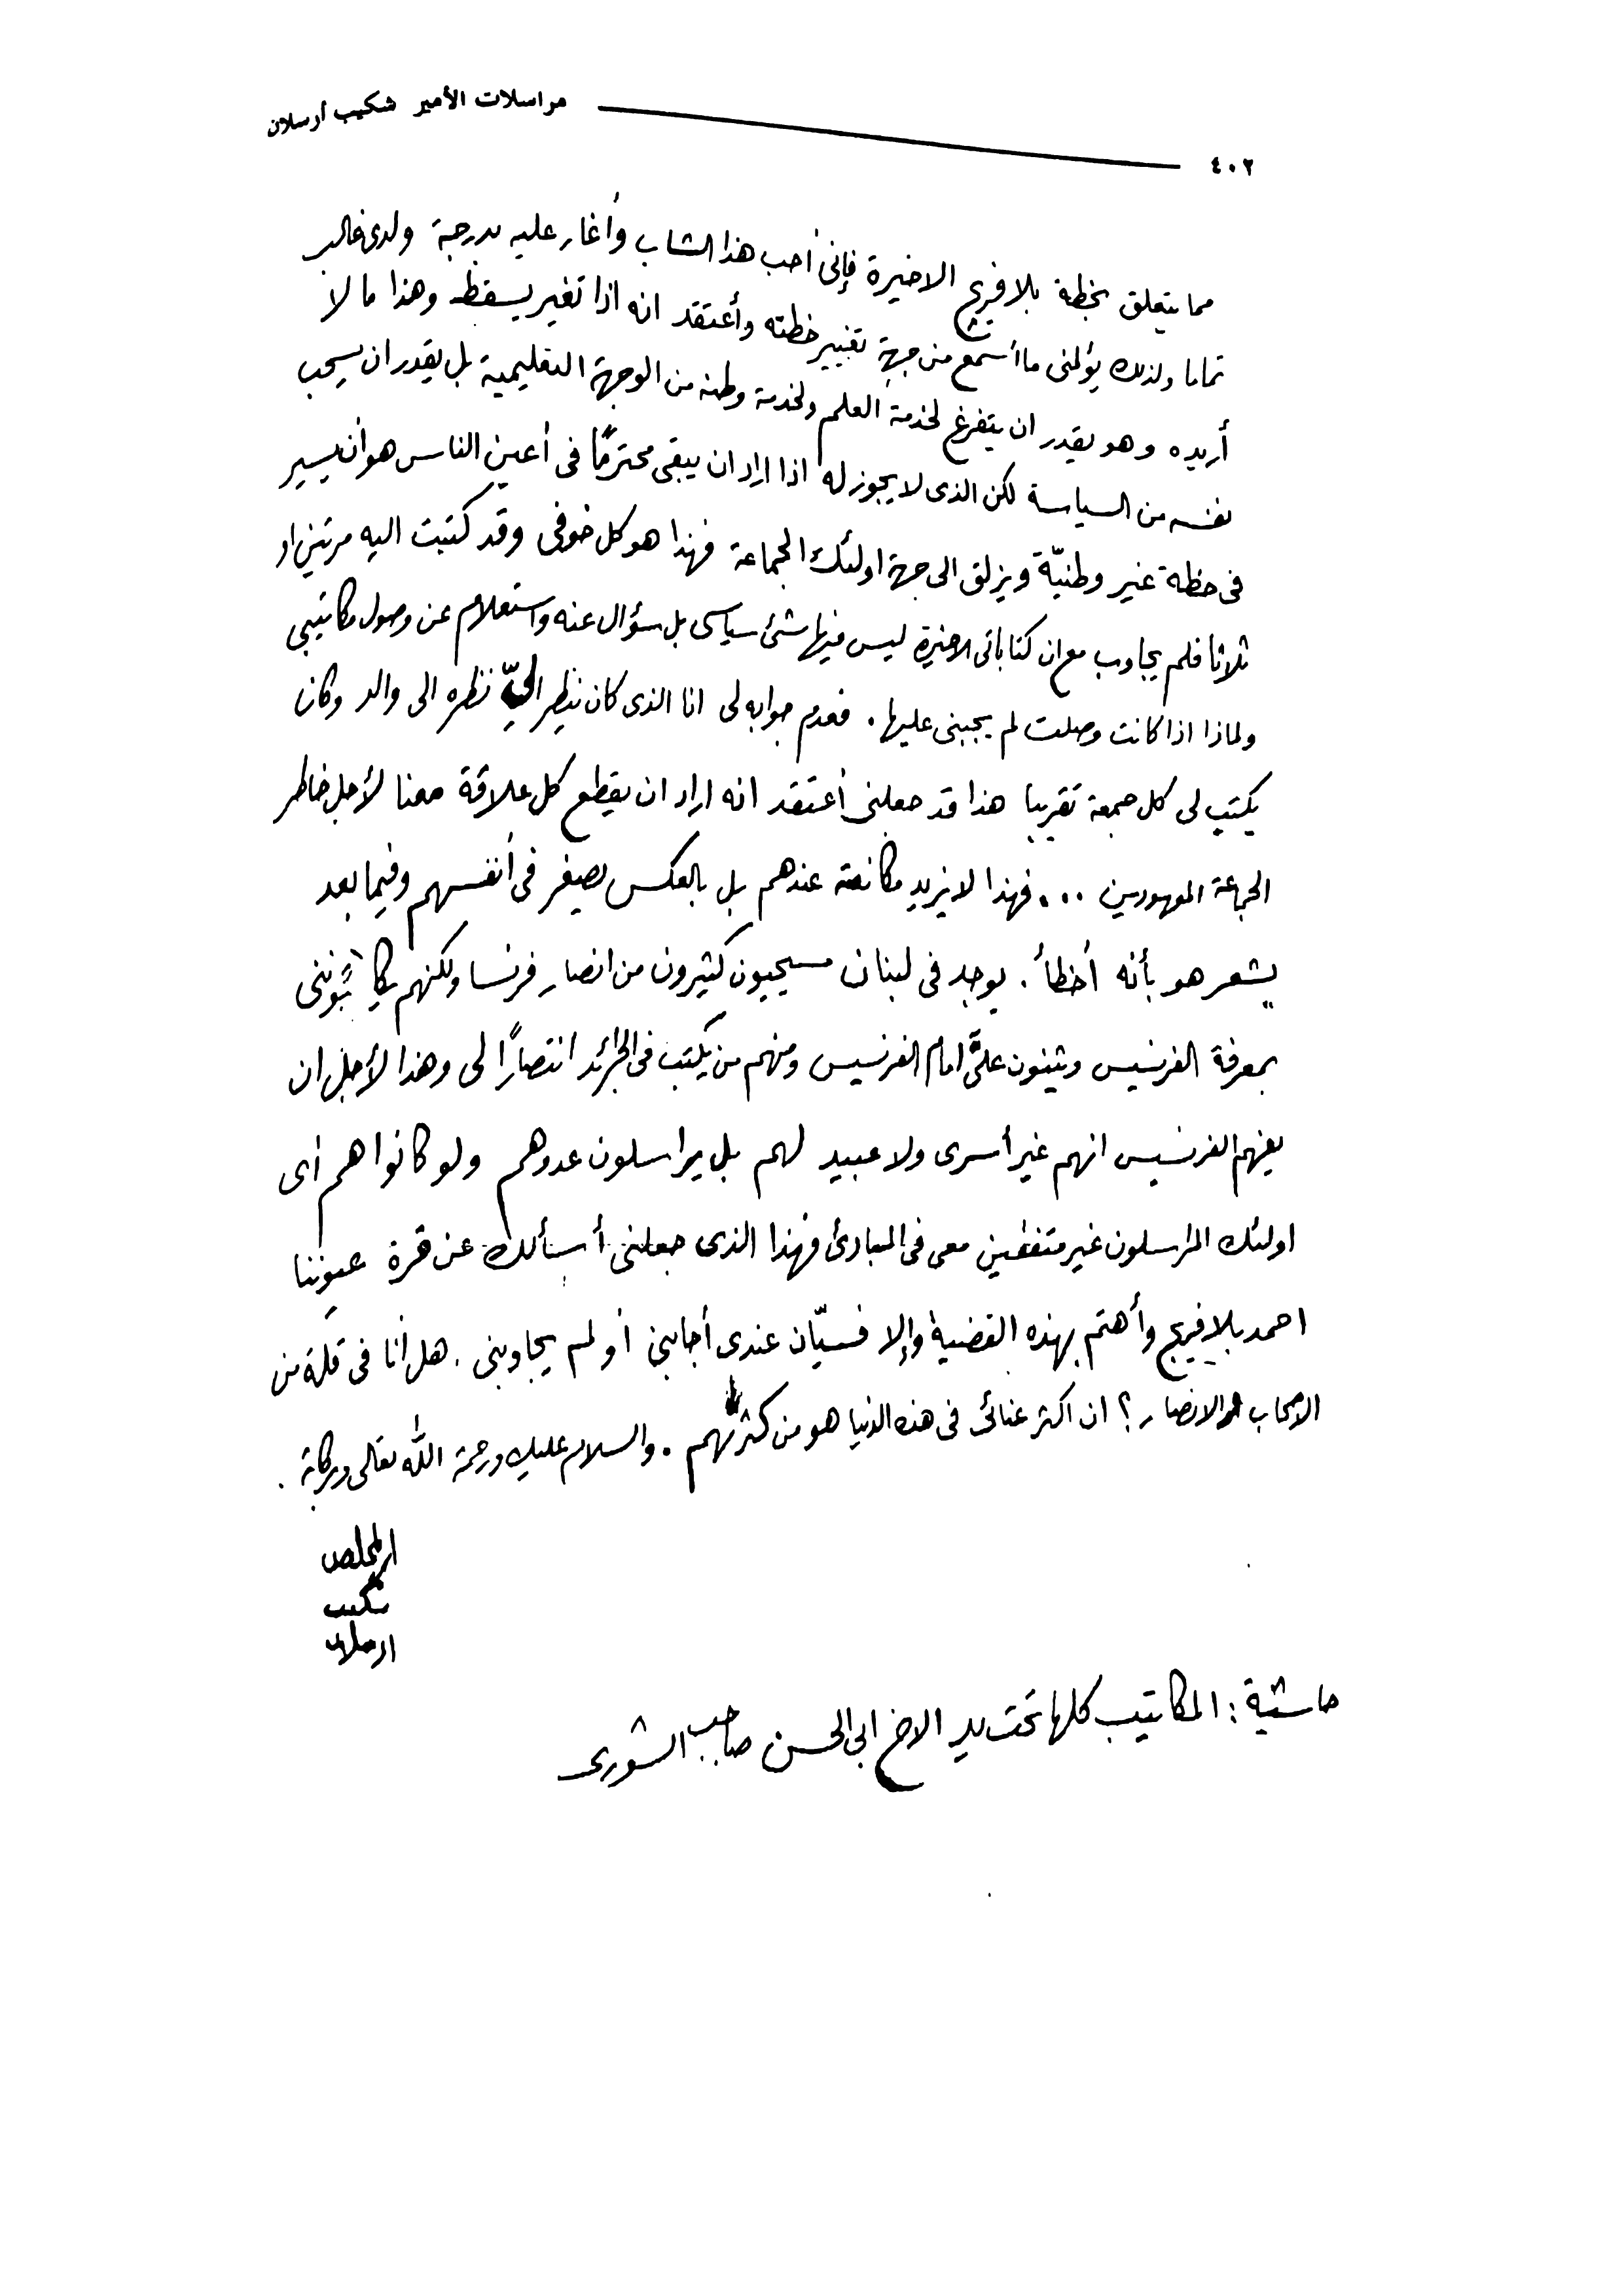 مراسلات الأمير شكيب أرسلان
٤٠٢
مما يتعلق بخطة بلافريج الاخيرة فإنى أحب هذا الشاب وأغار عليه بدرجة ولدى غالب
تماما ولذلك يؤلمنى ما أسمع من جهة تغيير خطته وأعتقد انه اذا تغير يسقط وهذا ما لا
أريده وهو يقدر ان يتفرغ لخدمة العلم ولخدمة وطنه من الوجهة التعليمية بل يقدر ان يسحب
نفسه من السياسة لكن الذى لا يجوز له اذا اراد ان يبقى محترمًا فى أعين الناس هو أن يسير
فى خطة غير وطنيّة ويزلق الى جهة اولئك الجماعة فهذا هو كل خوفى وقد كتبت اليه مرتين او
ثلاثا فلم يجاوب مع ان كتاباتى الاخيرة ليس فيها شئ سياسى بل سؤال عنه واستعلام عن وصول مكاتيبى
ولماذا اذا كانت وصلت لم يجبنى عليها . فعدم جوابه لى انا الذى كان ينظر اليّ نظره الى والد وكان
يكتب لى كل جمعة تقريبا هذا قد جعلنى أعتقد انه اراد ان يقطع كل علاقة معنا لأجل خاطر
الجماعة المعهودين ... فهذا لا يزيد مكانته عندهم بل بالعكس يصغر فى أنفسهم وفيما بعد
يشعر هو بأنه أخطأ . يوجد فى لبنان مسيحيون كثيرون من انصار فرنسا ولكنهم يكاتبوننى
بمعرفة الفرنسيس ويثنون علىّ امام الفرنسيس ومنهم من يكتب فى الجرائد انتصارًا لى وهذا لأجل ان
يفهم الفرنسيس انهم غير أسرى ولا عبيد لهم بل يراسلون عدوهم ولو كانوا هم أى
اولئك المراسلون غير متفقين معى فى المبادئ فهذا الذى جعلنى أسألك عن قرة عيوننا
احمد بلافريج وأهتم بهذه القضية وإلا فسيّان عندى أجابنى أو لم يجاوبنى . هل أنا فى قلة من
الاصحاب والانصار ؟ ان اكثر عنائى فى هذه الدنيا هو من كثرتهم . والسلام عليك ورحمة الله تعالى وبركاته .
المخلص
شكيب
ارسلان
حاشية : المكاتيب كلها تحت يد الاخ ابى الحسن صاحب الشورى